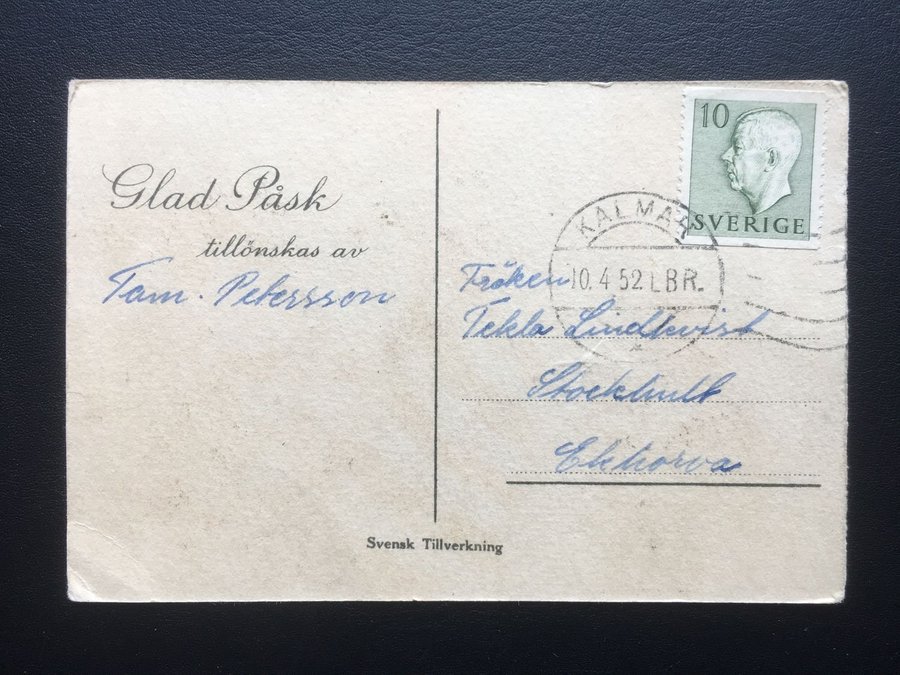 Glad Påsk
tillönskas av
Fam. Petersson
10
SVERIGE
KALMAR
10.4.52.LBR.
Fröken
Tekla Lindkvist
Stockhult
Ekhorva
Svensk Tillverkning